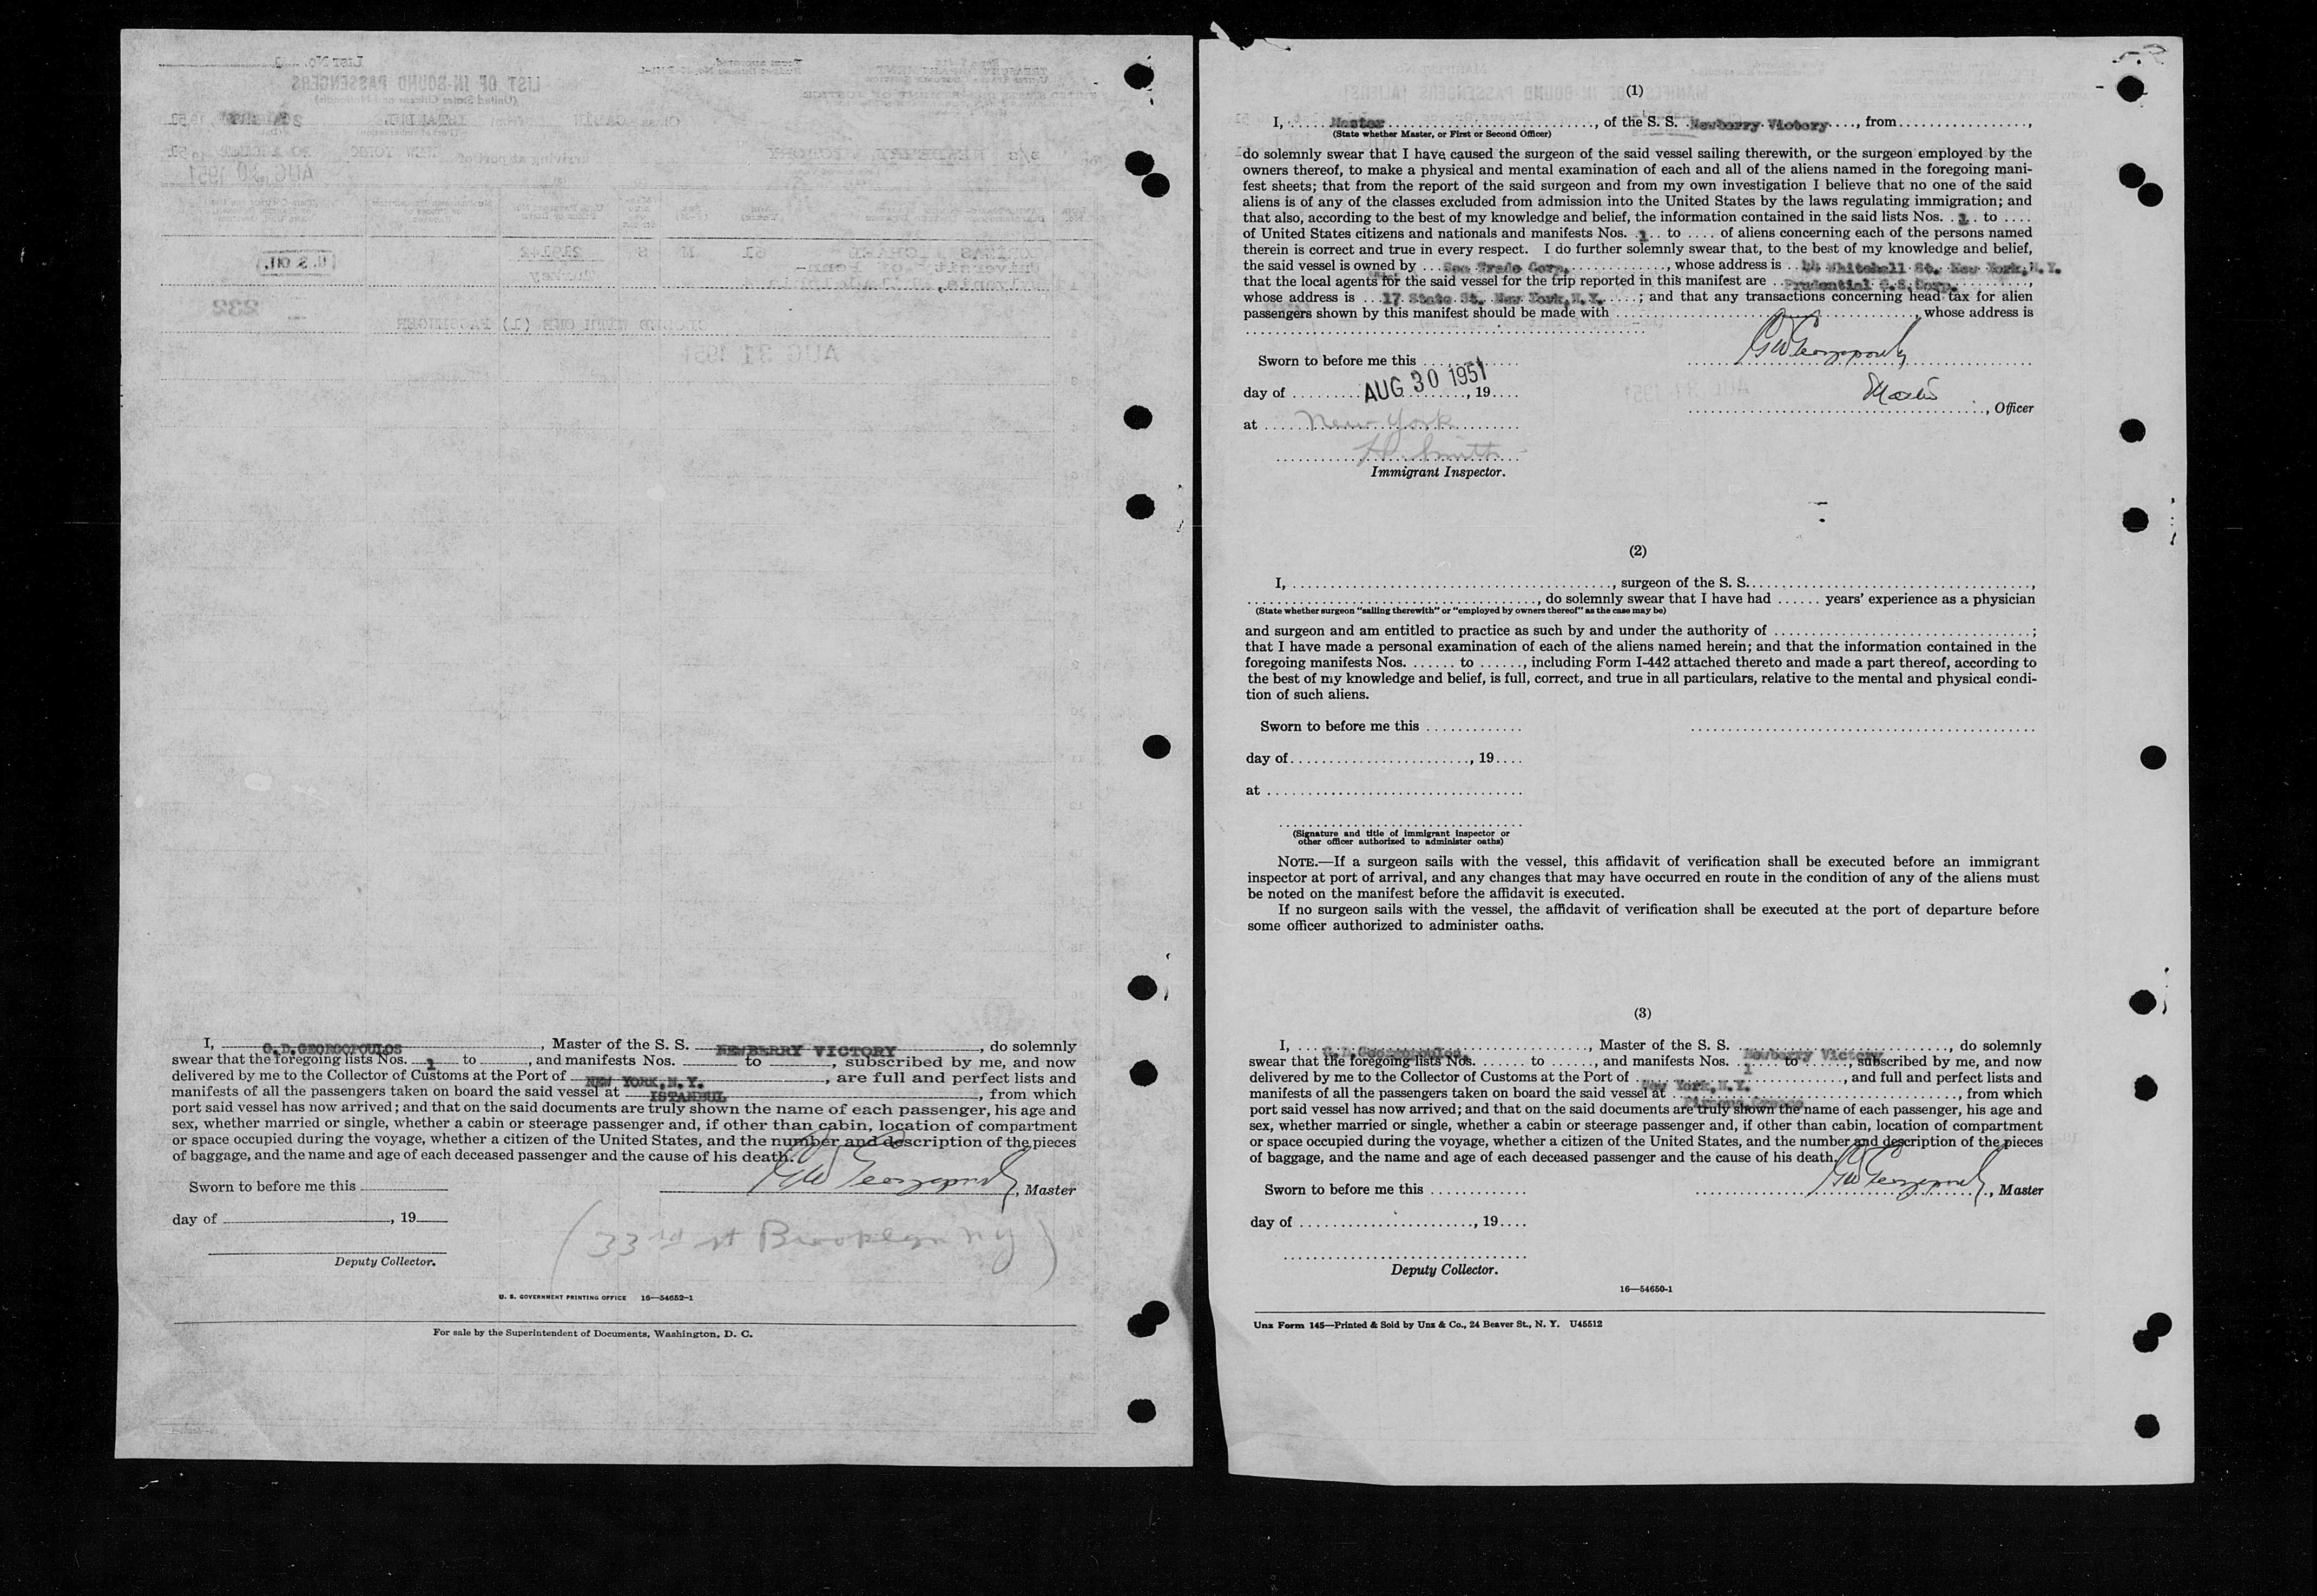 I, G. D. GEORGOPOULOS, Master of the S. S. NEWBERRY VICTORY, do solemnly
swear that the foregoing lists Nos. 1 to , and manifests Nos. to , subscribed by me, and now
delivered by me to the Collector of Customs at the Port of NEW YORK, N.Y., are full and perfect lists and
manifests of all the passengers taken on board the said vessel at ISTANBUL, from which
port said vessel has now arrived; and that on the said documents are truly shown the name of each passenger, his age and
sex, whether married or single, whether a cabin or steerage passenger and, if other than cabin, location of compartment
or space occupied during the voyage, whether a citizen of the United States, and the number and description of the pieces
of baggage, and the name and age of each deceased passenger and the cause of his death.
Sworn to before me this
, Master
day of , 19
(33rd st Brooklyn NY)
Deputy Collector.
U. S. GOVERNMENT PRINTING OFFICE 16—54652-1
For sale by the Superintendent of Documents, Washington, D. C.
(1)
I, Master, of the S. S. Newberry Victory, from ,
(State whether Master, or First or Second Officer)
do solemnly swear that I have caused the surgeon of the said vessel sailing therewith, or the surgeon employed by the
owners thereof, to make a physical and mental examination of each and all of the aliens named in the foregoing mani-
fest sheets; that from the report of the said surgeon and from my own investigation I believe that no one of the said
aliens is of any of the classes excluded from admission into the United States by the laws regulating immigration; and
that also, according to the best of my knowledge and belief, the information contained in the said lists Nos. 1 to
of United States citizens and nationals and manifests Nos. 1 to of aliens concerning each of the persons named
therein is correct and true in every respect. I do further solemnly swear that, to the best of my knowledge and belief,
the said vessel is owned by Sea Trade Corp., whose address is 44 Whitehall St. New York, N.Y.
that the local agents for the said vessel for the trip reported in this manifest are Prudential S.S. Corp.,
whose address is 17 State St. New York, N.Y.; and that any transactions concerning head tax for alien
passengers shown by this manifest should be made with , whose address is
Sworn to before me this
day of AUG 30 1951, 19
Master, Officer
at New York
H. Smith
Immigrant Inspector.
(2)
I, , surgeon of the S. S. ,
, do solemnly swear that I have had years' experience as a physician
(State whether surgeon "sailing therewith" or "employed by owners thereof" as the case may be)
and surgeon and am entitled to practice as such by and under the authority of ;
that I have made a personal examination of each of the aliens named herein; and that the information contained in the
foregoing manifests Nos. to , including Form I-442 attached thereto and made a part thereof, according to
the best of my knowledge and belief, is full, correct, and true in all particulars, relative to the mental and physical condi-
tion of such aliens.
Sworn to before me this
day of , 19
at
(Signature and title of immigrant inspector or
other officer authorized to administer oaths)
NOTE.—If a surgeon sails with the vessel, this affidavit of verification shall be executed before an immigrant
inspector at port of arrival, and any changes that may have occurred en route in the condition of any of the aliens must
be noted on the manifest before the affidavit is executed.
If no surgeon sails with the vessel, the affidavit of verification shall be executed at the port of departure before
some officer authorized to administer oaths.
(3)
I, G. D. Georgopoulos, Master of the S. S. Newberry Victory, do solemnly
swear that the foregoing lists Nos. to , and manifests Nos. 1 to , subscribed by me, and now
delivered by me to the Collector of Customs at the Port of New York, N.Y., and full and perfect lists and
manifests of all the passengers taken on board the said vessel at Piraeus, Greece, from which
port said vessel has now arrived; and that on the said documents are truly shown the name of each passenger, his age and
sex, whether married or single, whether a cabin or steerage passenger and, if other than cabin, location of compartment
or space occupied during the voyage, whether a citizen of the United States, and the number and description of the pieces
of baggage, and the name and age of each deceased passenger and the cause of his death.
Sworn to before me this
, Master
day of , 19
Deputy Collector.
16—54650-1
Unz Form 145—Printed & Sold by Unz & Co., 24 Beaver St., N. Y. U45512